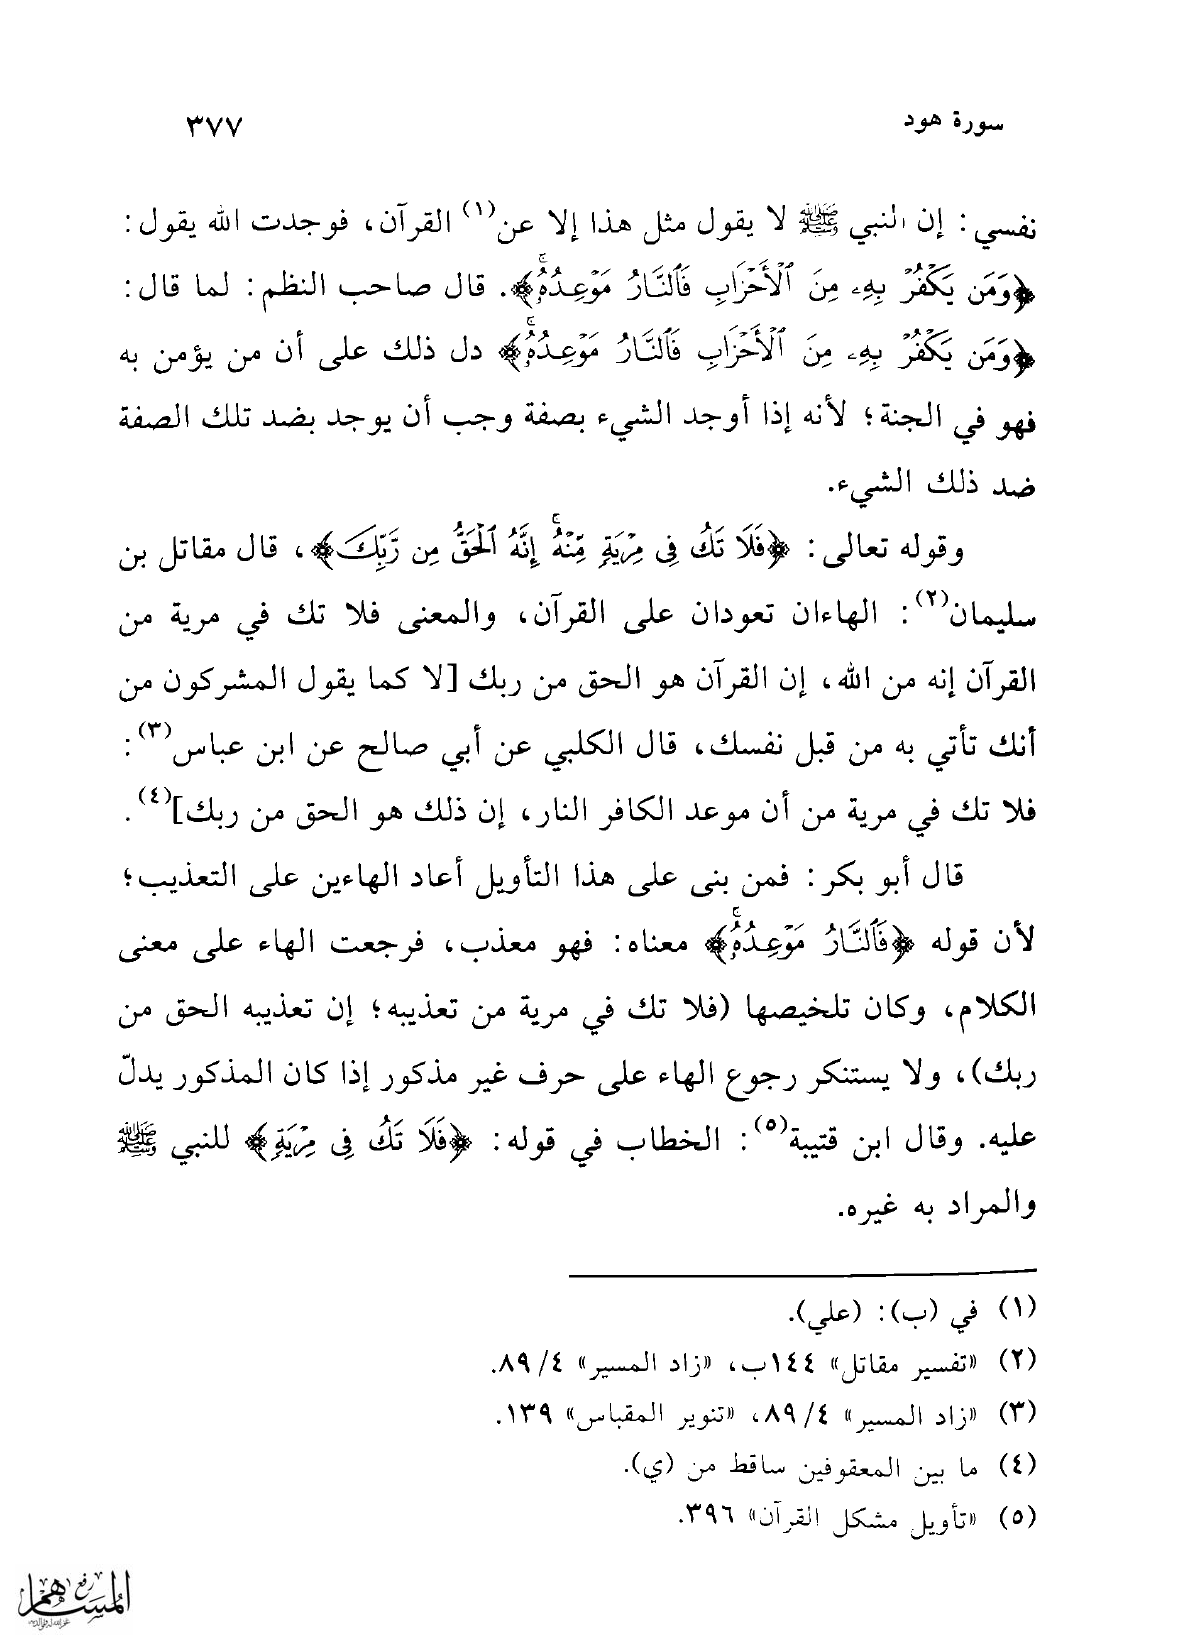 سورة هود
٣٧٧
نفسي: إن النبي ﷺ لا يقول مثل هذا إلا عن(١) القرآن، فوجدت الله يقول:
﴿وَمَن يَكْفُرْ بِهِۦ مِنَ ٱلْأَحْزَابِ فَٱلنَّارُ مَوْعِدُهُۥۚ﴾. قال صاحب النظم: لما قال:
﴿وَمَن يَكْفُرْ بِهِۦ مِنَ ٱلْأَحْزَابِ فَٱلنَّارُ مَوْعِدُهُۥۚ﴾ دل ذلك على أن من يؤمن به
فهو في الجنة؛ لأنه إذا أوجد الشيء بصفة وجب أن يوجد بضد تلك الصفة
ضد ذلك الشيء.
وقوله تعالى: ﴿فَلَا تَكُ فِى مِرْيَةٍ مِّنْهُۚ إِنَّهُ ٱلْحَقُّ مِن رَّبِّكَ﴾، قال مقاتل بن
سليمان(٢): الهاءان تعودان على القرآن، والمعنى فلا تك في مرية من
القرآن إنه من الله، إن القرآن هو الحق من ربك [لا كما يقول المشركون من
أنك تأتي به من قبل نفسك، قال الكلبي عن أبي صالح عن ابن عباس(٣):
فلا تك في مرية من أن موعد الكافر النار، إن ذلك هو الحق من ربك](٤).
قال أبو بكر: فمن بنى على هذا التأويل أعاد الهاءين على التعذيب؛
لأن قوله ﴿فَٱلنَّارُ مَوْعِدُهُۥۚ﴾ معناه: فهو معذب، فرجعت الهاء على معنى
الكلام، وكان تلخيصها (فلا تك في مرية من تعذيبه؛ إن تعذيبه الحق من
ربك)، ولا يستنكر رجوع الهاء على حرف غير مذكور إذا كان المذكور يدلّ
عليه. وقال ابن قتيبة(٥): الخطاب في قوله: ﴿فَلَا تَكُ فِى مِرْيَةٍ﴾ للنبي ﷺ
والمراد به غيره.
(١) في (ب): (علي).
(٢) «تفسير مقاتل» ١٤٤ب، «زاد المسير» ٤/ ٨٩.
(٣) «زاد المسير» ٤/ ٨٩، «تنوير المقباس» ١٣٩.
(٤) ما بين المعقوفين ساقط من (ي).
(٥) «تأويل مشكل القرآن» ٣٩٦.
رفع
المساهم